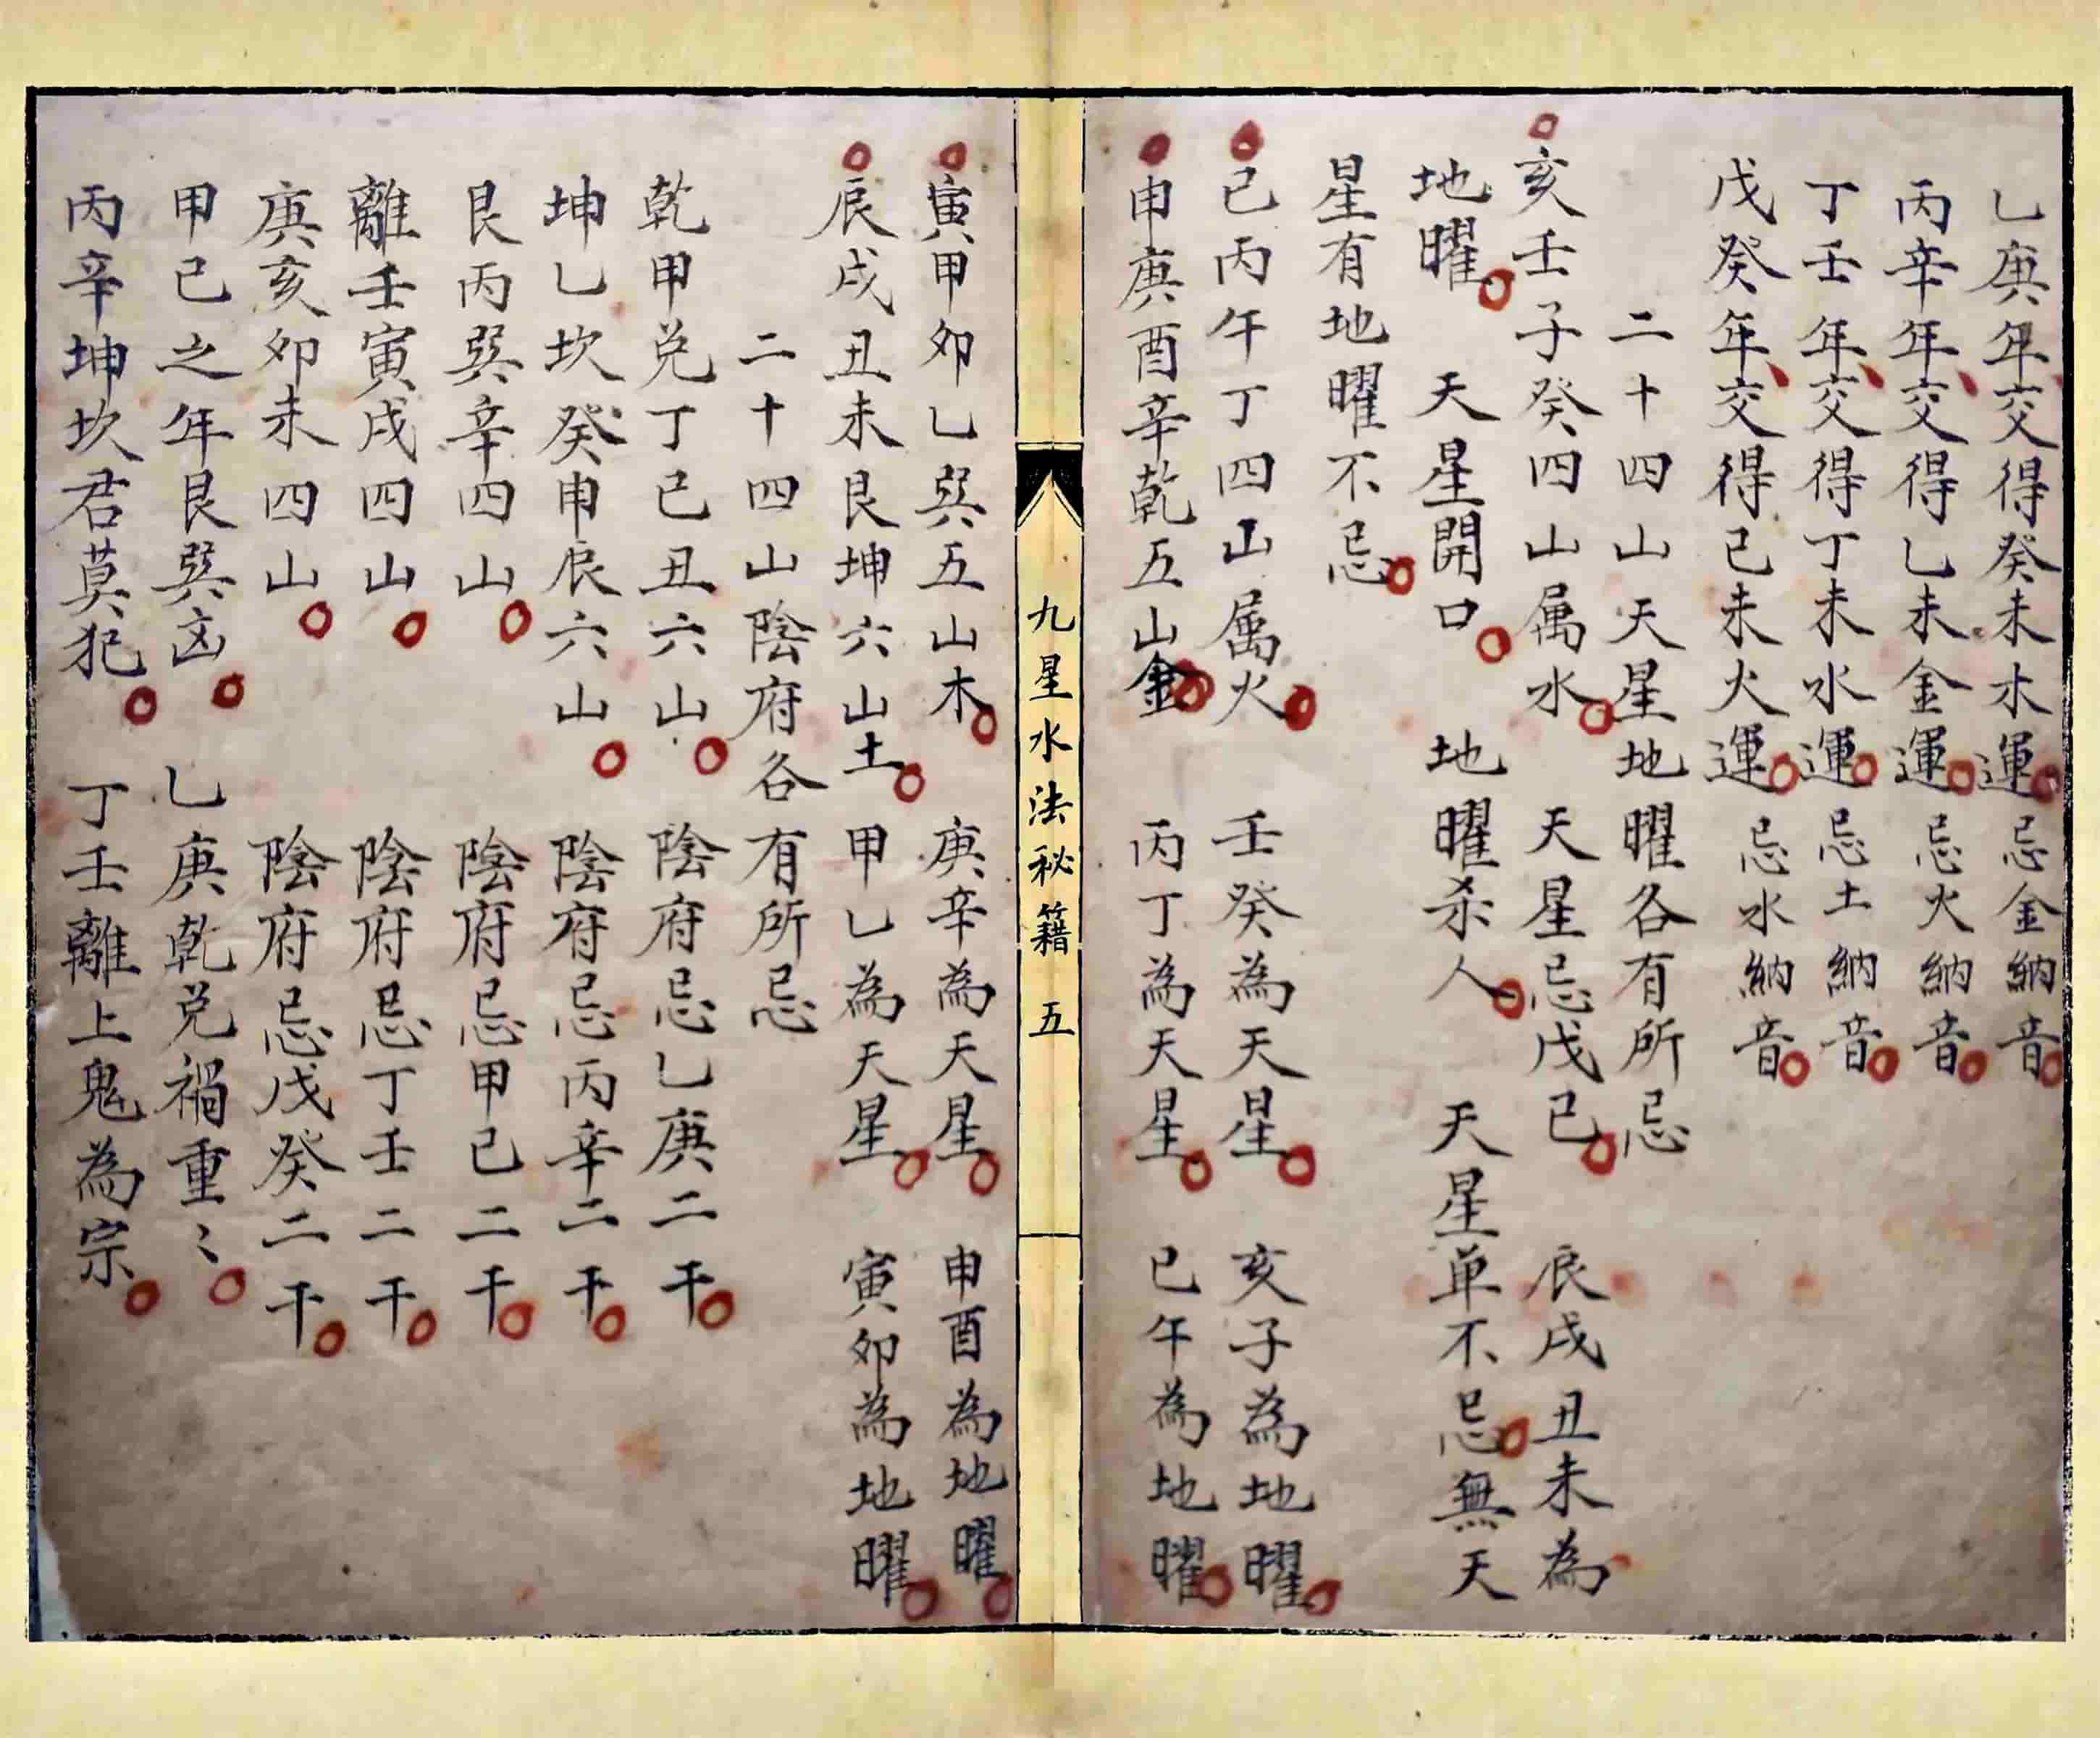 乙庚年交得癸未木運忌金納音
丙辛年交得乙未金運忌火納音
丁壬年交得丁未水運忌土納音
戊癸年交得己未火運忌水納音
二十四山天星地曜各有所忌
亥壬子癸四山属水 天星忌戊己 辰戌丑未為
地曜 天星開口 地曜杀人 天星单不忌無天
星有地曜不忌
巳丙午丁四山属火 壬癸為天星 亥子為地曜
申庚酉辛乾五山金 丙丁為天星 巳午為地曜
九星水法秘籍 五
寅甲卯乙巽五山木 庚辛為天星 申酉為地曜
辰戌丑未艮坤六山土 甲乙為天星 寅卯為地曜
二十四山陰府各有所忌
乾甲兑丁巳丑六山 陰府忌乙庚二干
坤乙坎癸申辰六山 陰府忌丙辛二干
艮丙巽辛四山 陰府忌甲己二干
離壬寅戌四山 陰府忌丁壬二干
庚亥卯未四山 陰府忌戊癸二干
甲己之年艮巽凶 乙庚乾兑禍重〻
丙辛坤坎君莫犯 丁壬離上鬼為宗